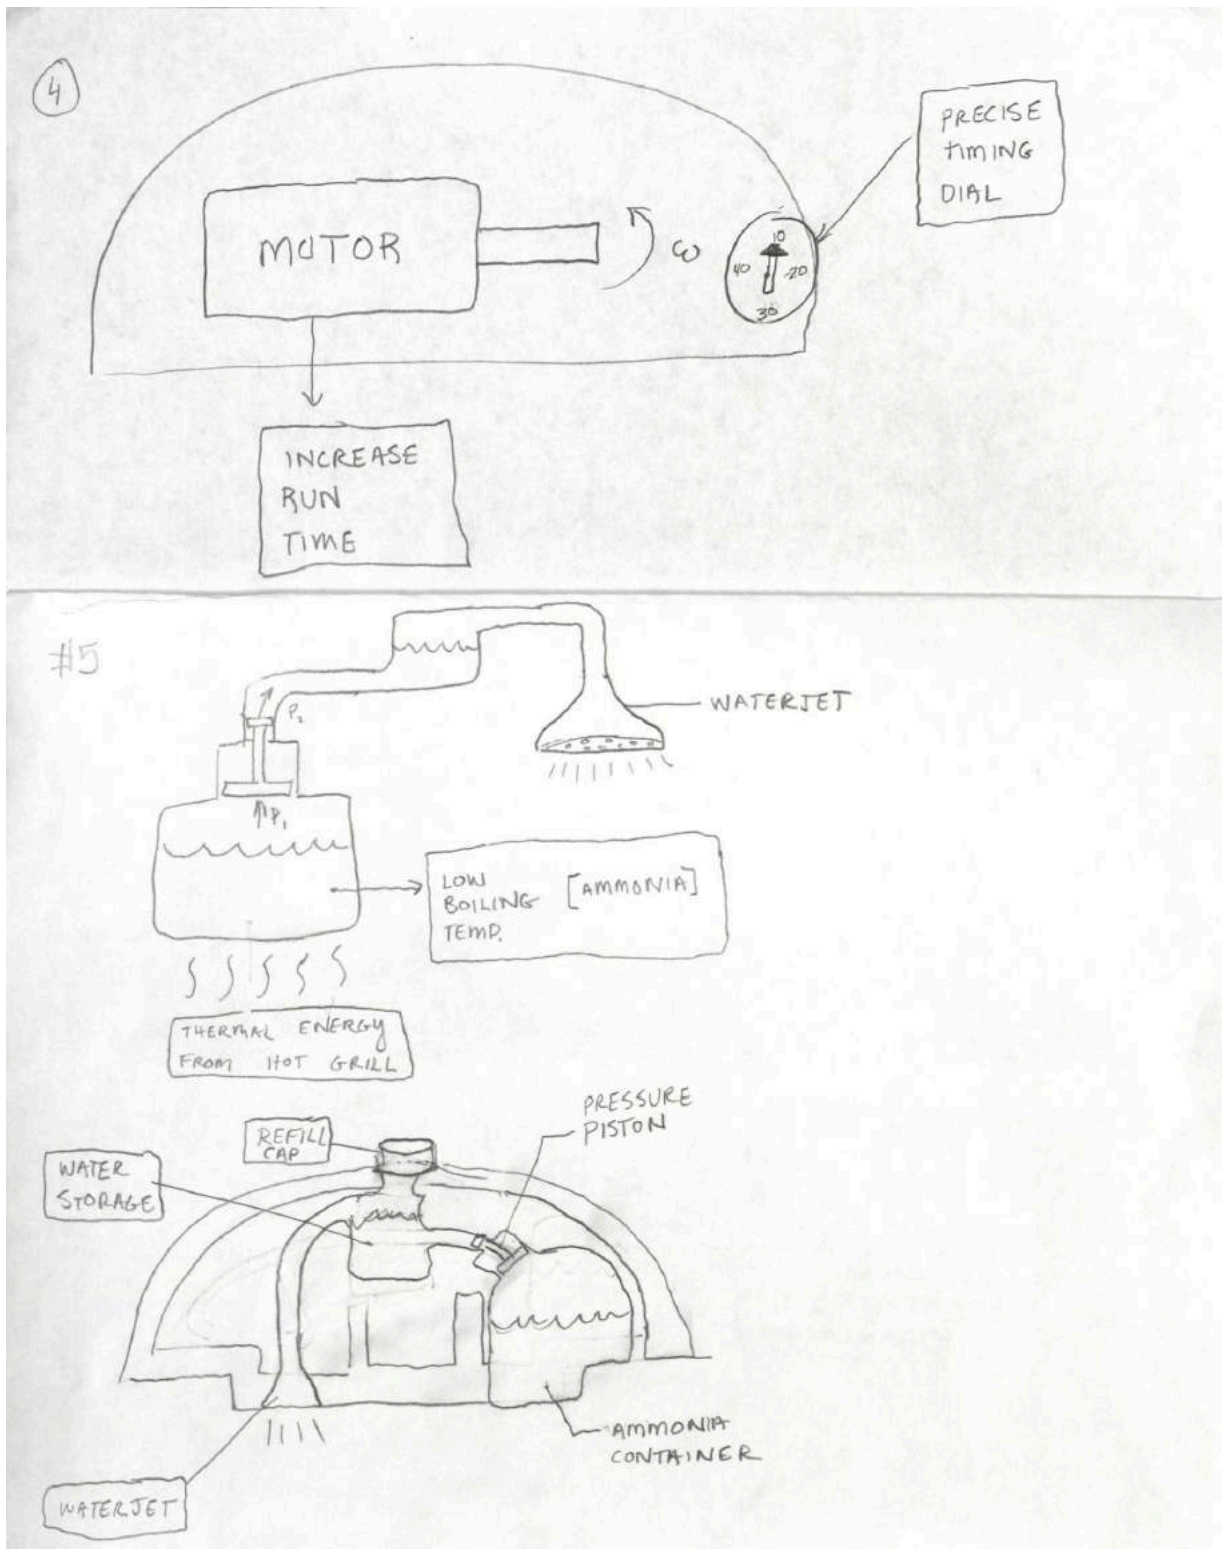 4
PRECISE
TIMING
DIAL
MOTOR
ω
10
40
-20
30
INCREASE
RUN
TIME
#5
P₂
WATERJET
P₁
LOW
BOILING [AMMONIA]
TEMP.
THERMAL ENERGY
FROM HOT GRILL
PRESSURE
PISTON
REFILL
CAP
WATER
STORAGE
AMMONIA
CONTAINER
WATERJET